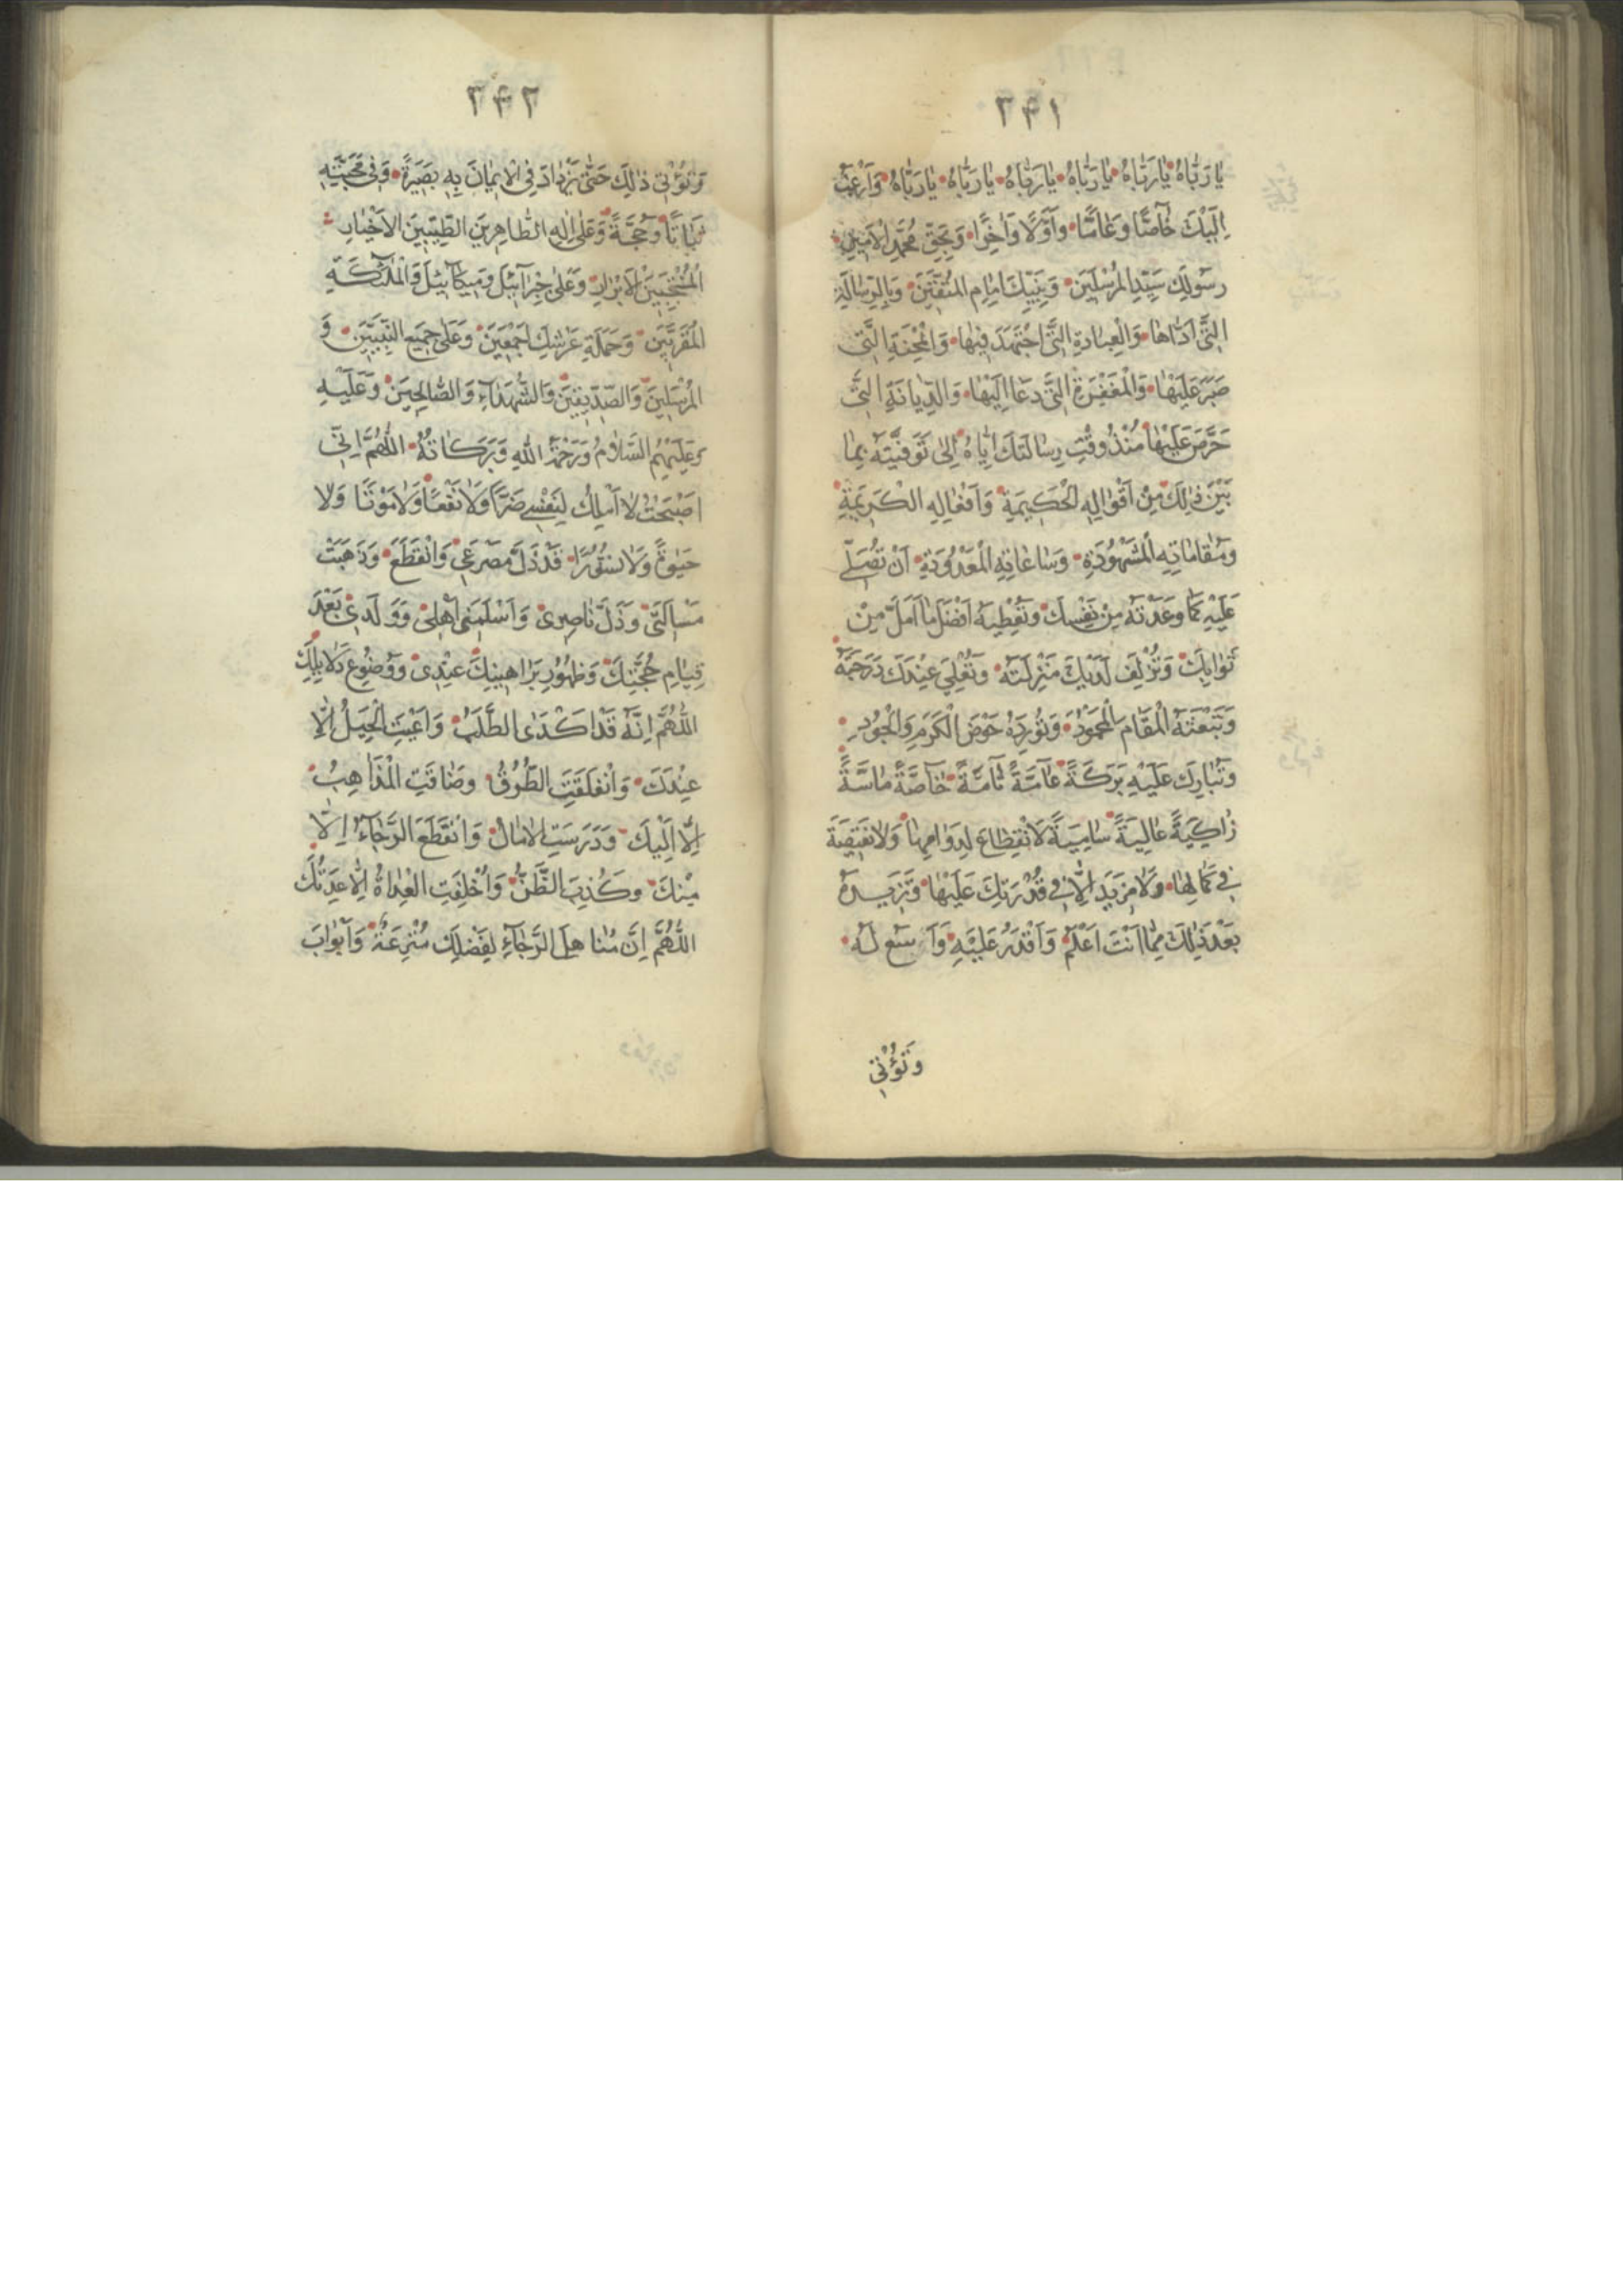 ٣٤١
يٰا رَبّٰاهُ يٰا رَبّٰاهُ يٰا رَبّٰاهُ يٰا رَبّٰاهُ يٰا رَبّٰاهُ يٰا رَبّٰاهُ وَاَرْغَبُ
اِلَيْكَ خٰاصًّا وَعٰامًّا وَاَوَّلًا وَاٰخِرًا وَبِحَقِّ مُحَمَّدٍ الْاَمِينِ
رَسُولِكَ سَيِّدِ الْمُرْسَلِينَ وَنَبِيِّكَ اِمٰامِ الْمُتَّقِينَ وَبِالرِّسٰالَةِ
الَّتِي اَدّٰاهٰا وَالْعِبٰادَةِ الَّتِي اجْتَهَدَ فِيهٰا وَالْمِحْنَةِ الَّتِي
صَبَرَ عَلَيْهٰا وَالْمَغْفِرَةِ الَّتِي دَعٰا اِلَيْهٰا وَالدِّيٰانَةِ الَّتِي
حَرَّضَ عَلَيْهٰا مُنْذُ وَقْتِ رِسٰالَتِكَ اِيّٰاهُ اِلٰى تَوَفَّيْتَهُ بِمٰا
بَيْنَ ذٰلِكَ مِنْ اَقْوٰالِهِ الْحَكِيمَةِ وَاَفْعٰالِهِ الْكَرِيمَةِ
وَمَقٰامٰاتِهِ الْمَشْهُودَةِ وَسٰاعٰاتِهِ الْمَعْدُودَةِ اَنْ تُصَلِّيَ
عَلَيْهِ كَمٰا وَعَدْتَهُ مِنْ نَفْسِكَ وَتُعْطِيَهُ اَفْضَلَ مٰا اَمَّلَ مِنْ
ثَوٰابِكَ وَتُزْلِفَ لَدَيْكَ مَنْزِلَتَهُ وَتُعْلِيَ عِنْدَكَ دَرَجَتَهُ
وَتَبْعَثَهُ الْمَقٰامَ الْمَحْمُودَ وَتُورِدَهُ حَوْضَ الْكَرَمِ وَالْجُودِ
وَتُبٰارِكَ عَلَيْهِ بَرَكَةً عٰامَّةً تٰامَّةً خٰاصَّةً مٰاسَّةً
زٰاكِيَةً عٰالِيَةً سٰامِيَةً لَا انْقِطٰاعَ لِدَوٰامِهٰا وَلٰا نَقِيصَةَ
فِي كَمٰالِهٰا وَلٰا مَزِيدَ اِلّٰا فِي قُدْرَتِكَ عَلَيْهٰا وَتَزِيدَهُ
بَعْدَ ذٰلِكَ مِمّٰا اَنْتَ اَعْلَمُ وَاَقْدَرُ عَلَيْهِ وَاَوْسَعُ لَهُ
وَتُؤْتِي
٣٤٢
وَتُؤْتِي ذٰلِكَ حَتّٰى يَزْدٰادَ فِي الْاِيمٰانَ بِهِ بَصِيرَةً وَفِي مَحَبَّتِهِ
ثَبٰاتًا وَحُجَّةً وَعَلٰى اٰلِهِ الطّٰاهِرِينَ الطَّيِّبِينَ الْاَخْيٰارِ
الْمُنْتَجَبِينَ الْاَبْرٰارِ وَعَلٰى جِبْرَآئِيلَ وَمِيكَآئِيلَ وَالْمَلٰئِكَةِ
الْمُقَرَّبِينَ وَحَمَلَةِ عَرْشِكَ اَجْمَعِينَ وَعَلٰى جَمِيعِ النَّبِيِّينَ وَ
الْمُرْسَلِينَ وَالصِّدِّيقِينَ وَالشُّهَدٰآءِ وَالصّٰالِحِينَ وَعَلَيْهِ
وَعَلَيْهِمُ السَّلٰامُ وَرَحْمَةُ اللّٰهِ وَبَرَكٰاتُهُ اَللّٰهُمَّ اِنِّي
اَصْبَحْتُ لٰا اَمْلِكُ لِنَفْسِي ضَرًّا وَلٰا نَفْعًا وَلٰا مَوْتًا وَلٰا
حَيٰوةً وَلٰا نُشُورًا قَدْ ذَلَّ مَصْرَعِي وَانْقَطَعَ وَذَهَبَتْ
مَسْاَلَتِي وَذَلَّ نٰاصِرِي وَاَسْلَمَنِي اَهْلِي وَوَلَدِي بَعْدَ
قِيٰامِ حُجَّتِكَ وَظُهُورِ بَرٰاهِينِكَ عِنْدِي وَوُضُوعِ دَلٰايِلِكَ
اَللّٰهُمَّ اِنَّهُ قَدْ اَكْدَى الطَّلَبُ وَاَعْيَتِ الْحِيَلُ اِلّٰا
عِنْدَكَ وَانْغَلَقَتِ الطُّرُقُ وَضٰاقَتِ الْمَذٰاهِبُ
اِلّٰا اِلَيْكَ وَدَرَسَتِ الْاٰمٰالُ وَانْقَطَعَ الرَّجٰآءُ اِلّٰا
مِنْكَ وَكَذِبَ الظَّنُّ وَاُخْلِفَتِ الْعِدٰاةُ اِلّٰا عِدَتُكَ
اَللّٰهُمَّ اِنَّ مَنٰاهِلَ الرَّجٰآءِ لِفَضْلِكَ مُتْرِعَةٌ وَاَبْوٰابَ